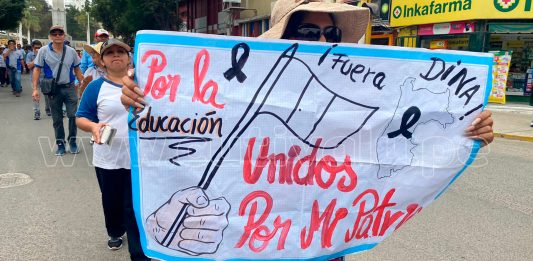 Inkafarma
¡Fuera
DINA!
Por la
Educación
Unidos
Por Mi Patria